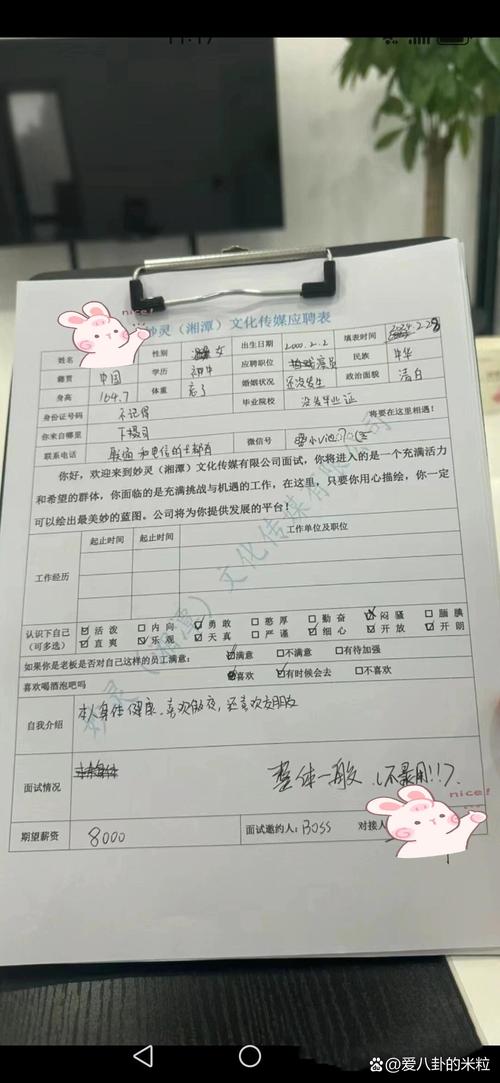 nice!
妙灵（湘潭）文化传媒应聘表
姓名 性别 女 出生日期 2000.2.2 填表时间
籍贯 中国 学历 初中 应聘职位 演员 民族 中华
身高 164.7 体重 忘了 婚姻状况 还没发生 政治面貌 清白
身份证号码 不记得 毕业院校 没发毕业证
你来自哪里 下摄司 将要在这里相遇！
联系电话 联通和电信的卡都有 微信号
你好，欢迎来到妙灵（湘潭）文化传媒有限公司面试，你将进入的是一个充满活力
和希望的群体，你面临的是充满挑战与机遇的工作，在这里，只要你用心描绘，你一定
可以绘出最美妙的蓝图。公司将为你提供发展的平台！
工作经历 起止时间 起止时间 工作单位及职位
认识下自己（可多选） ☑活泼 □内向 ☑勇敢 □憨厚 □勤奋 ☑闷骚 □腼腆
☑直爽 ☑乐观 ☑天真 □严谨 ☑细心 ☑开放 ☑开朗
如果你是老板是否对自己这样的员工满意： ☑满意 □不满意 □有待加强
喜欢喝酒泡吧吗 ☑喜欢 ☑有时候会去 □不喜欢
自我介绍 本人身体健康、喜欢做夜，还喜欢交朋友
面试情况 整体一般（不录用!!）
期望薪资 8000 面试邀约人：Boss 对接人
nice!
妙灵（湘潭）文化传媒有限公司
头条 @爱八卦的米粒